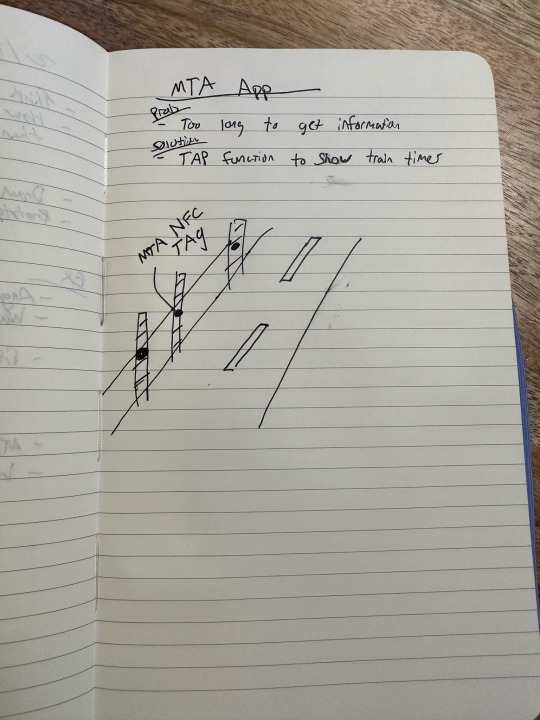 MTA App
Prob
- Too long to get information
Solution
- TAP function to show train times
MTA NFC
TAg